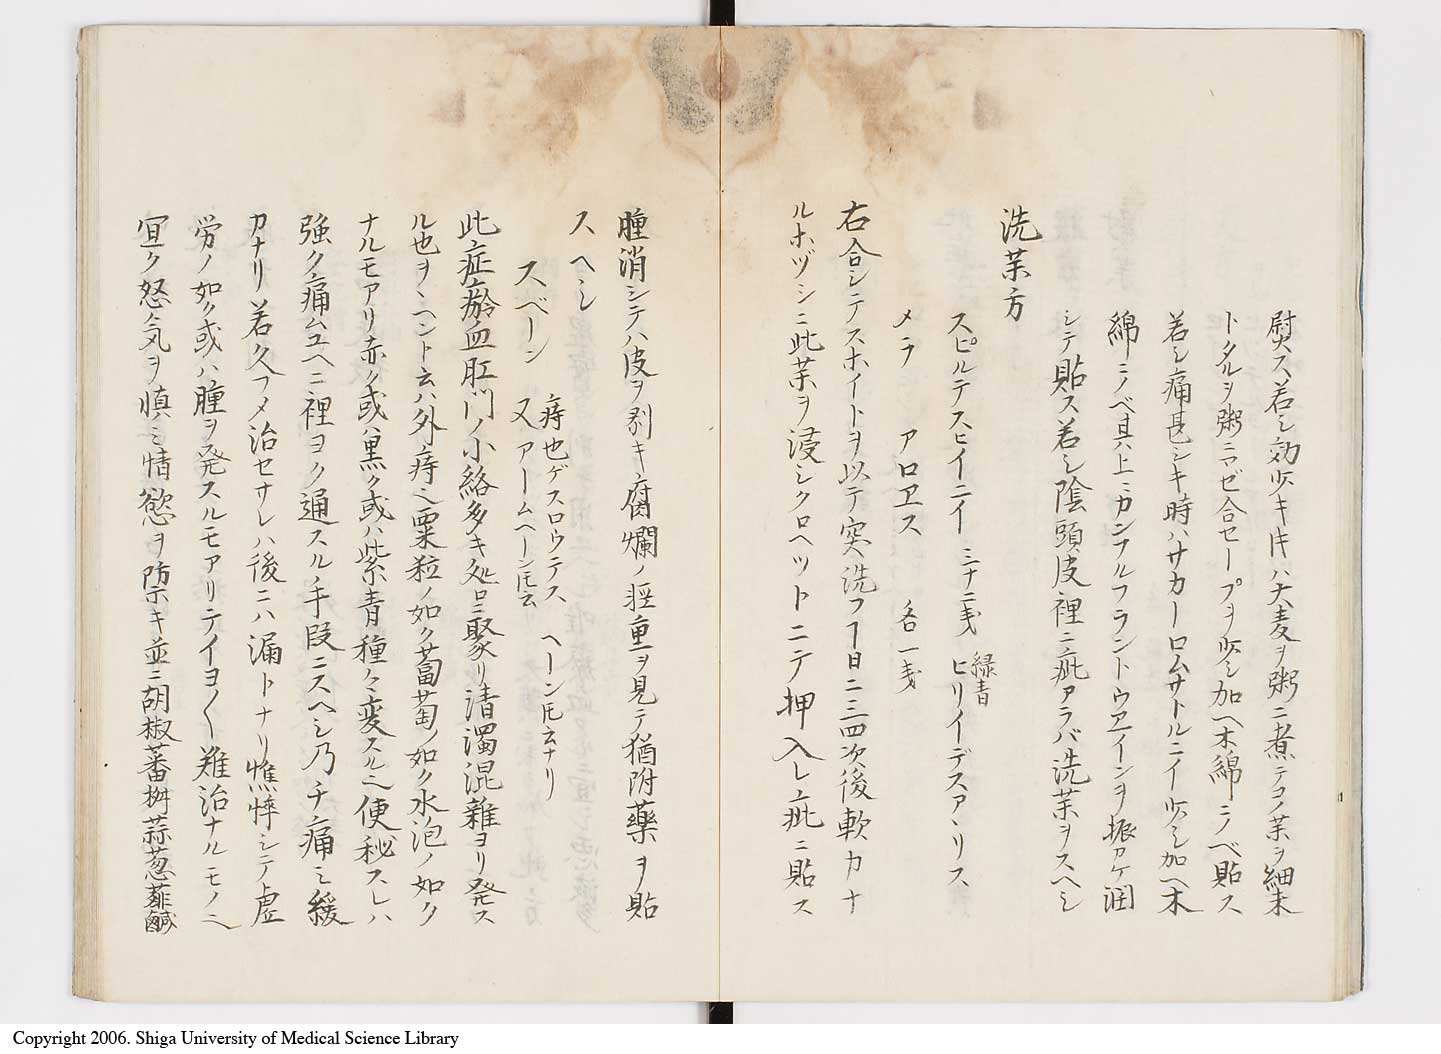 熨ス若シ効少キ片ハ大麦ヲ粥ニ煮テコノ茉ヲ細末
トタルヲ粥ニマゼ合セープヲ少シ加ヘ木綿ニノベ貼ス
若シ痛甚シキ時ハサカーロムサトルニイ少シ加ヘ木
綿ニノベ其上ニカンフルフラントウヱインヲ振カケ潤
シテ貼ス若シ陰頭皮裡ニ疵アラバ洗茉ヲスヘシ
洗茉方
スピルテスヒイニイ 三十二戔 ヒリイデスアヽリス
緑青
メラ アロヱス 各一戔
右合シテスホイトヲ以テ突洗フヿ日ニ三四次後軟カナ
ルホヅシニ此茉ヲ浸シクロヘットニテ押入レ疵ニ貼ス
腫消シテハ皮ヲ剥キ腐爛ノ軽重ヲ見テ猶附藥ヲ貼
スヘシ
スベーン 痔也ゲスロウテス ヘーン𪜈云ナリ
又アームヘーン𪜈云
此症瘀血肛門ノ小絡多キ処ニ聚リ清濁混雜ヨリ発ス
ル也ヲヽヘント云ハ外痔也粟粒ノ如ク葡萄ノ如ク水泡ノ如ク
ナルモアリ赤ク或ハ黒ク或ハ紫青種々変スル也便秘スレハ
強ク痛ムユヘニ裡ヨク通スル手段ニスヘシ乃チ痛ミ緩
カナリ若久フメ治セサレハ後ニハ漏トナリ憔悴シテ虚
労ノ如ク或ハ腫ヲ発スルモアリテイヨ〱難治ナルモノ也
宜ク怒気ヲ慎ミ情慾ヲ防キ並ニ胡椒蕃椒蒜葱薤鹹